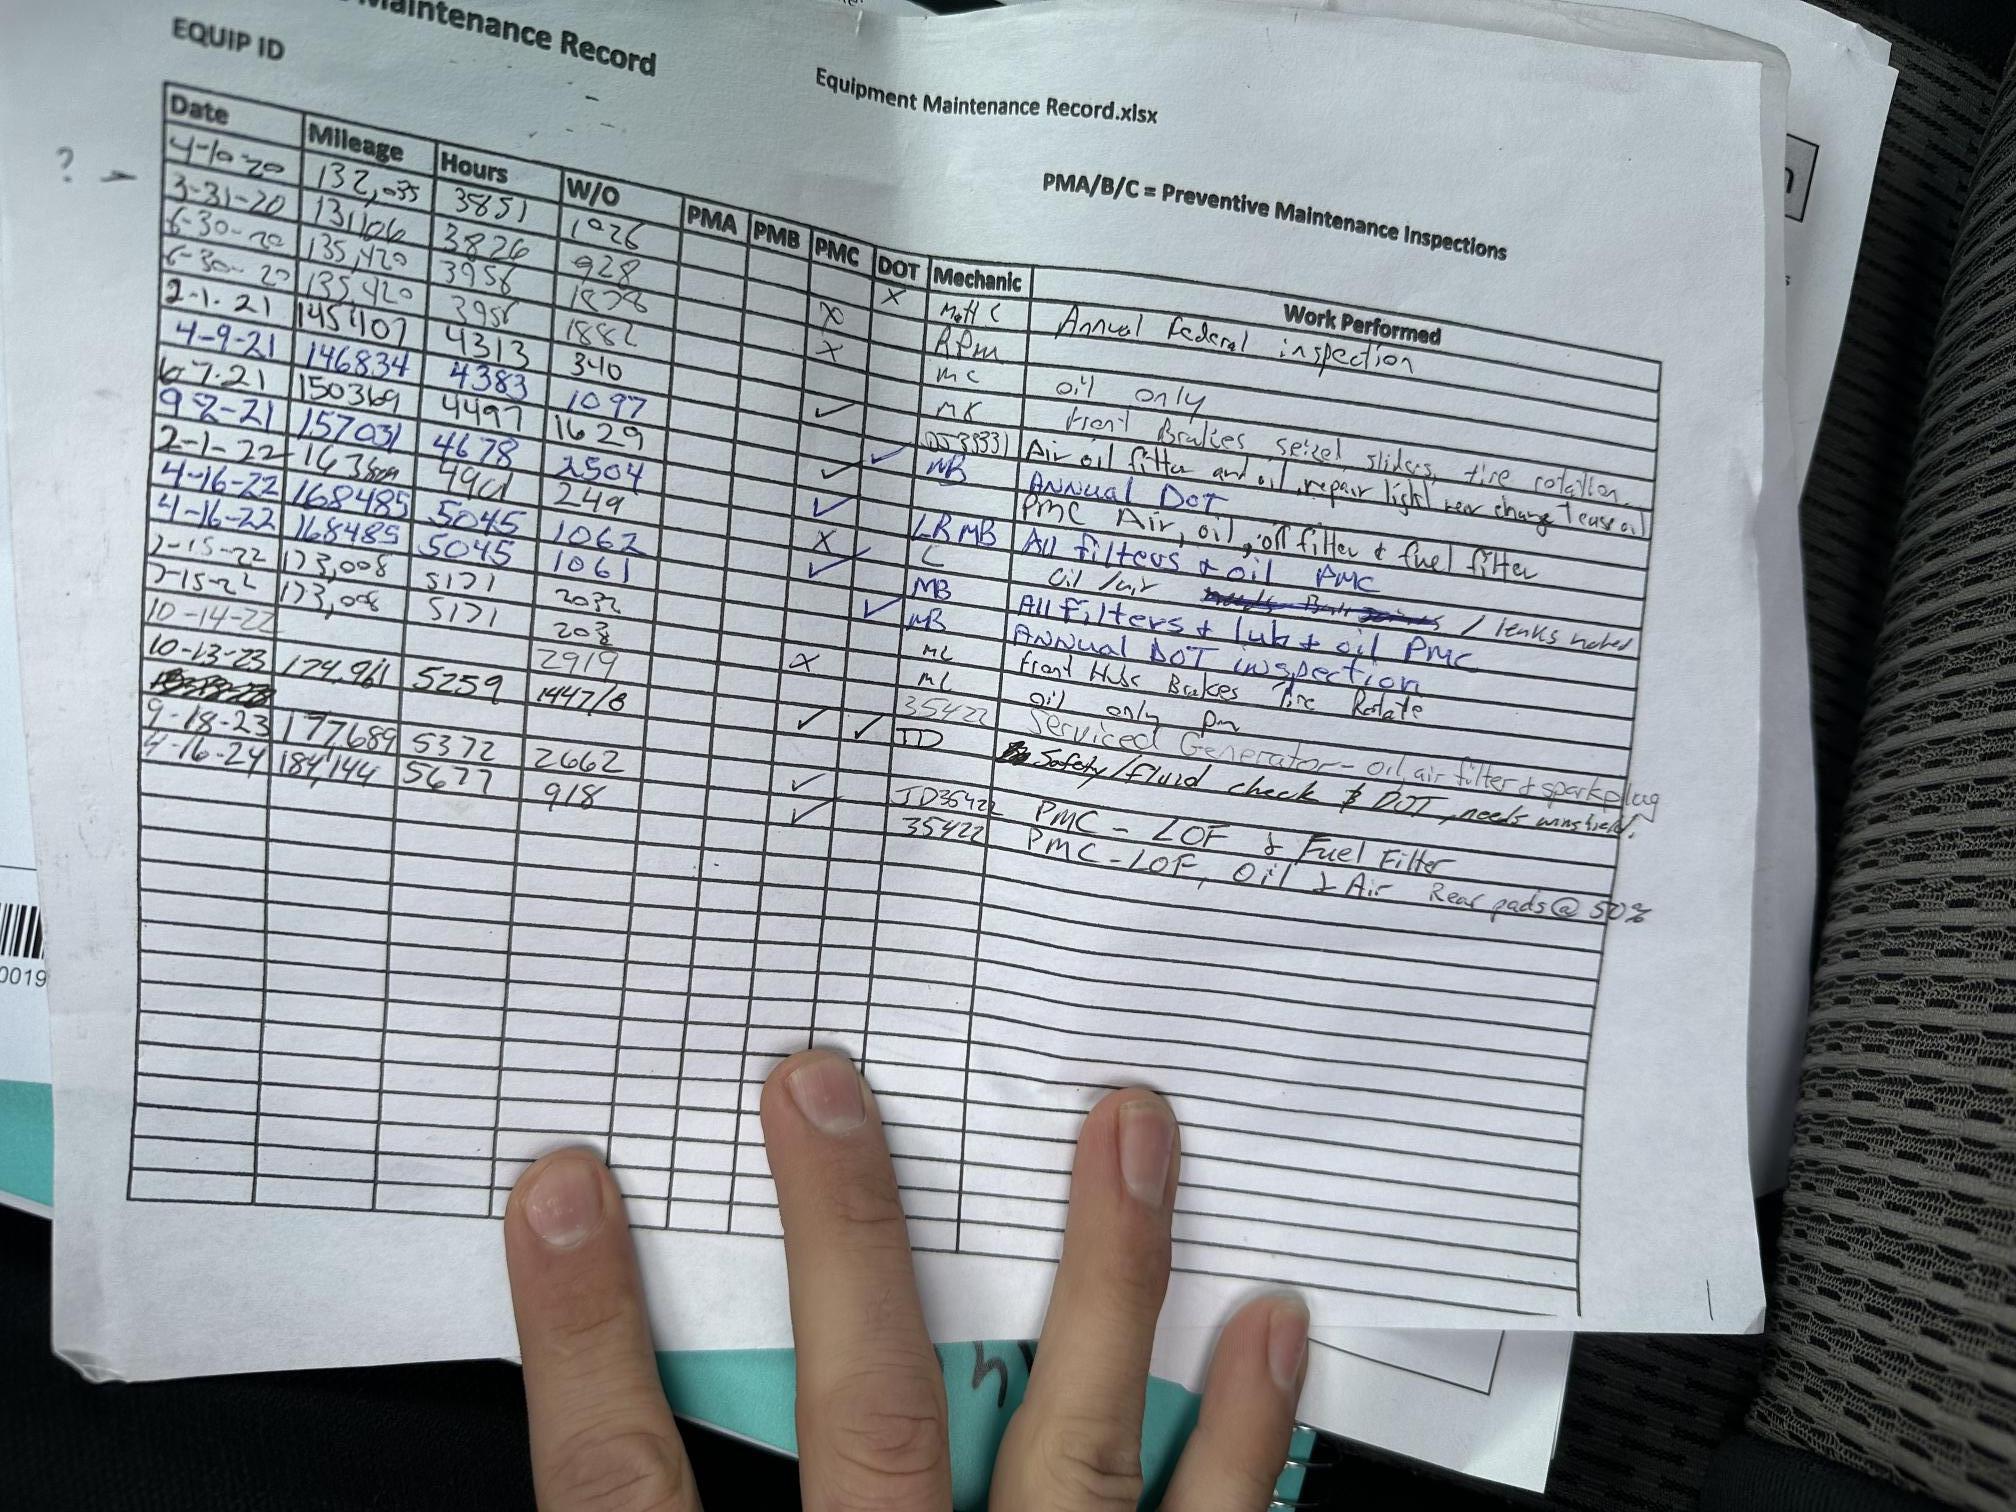 Maintenance Record
EQUIP ID
Equipment Maintenance Record.xlsx
PMA/B/C = Preventive Maintenance Inspections
Date Mileage Hours W/O PMA PMB PMC DOT Mechanic Work Performed
? 4-10-20 132,035 3851 1026 X Matt C Annual Federal inspection
3-31-20 131106 3826 928 X RPM
6-30-20 135,420 3956 X MC oil only
6-30-20 135,420 3956 1882 MK Front Brakes seized sliders, tire rotation
2-1-21 145407 4313 340 ✓ Air oil filter and oil, repair light rear change
4-9-21 146834 4383 1097 ✓ MB ANNUAL DOT
6-7-21 150369 4497 1629 ✓ PMC Air, oil, oil filter & fuel filter
9 8-21 157031 4678 2504 ✓ LR MB All filters & oil PMC
2-1-22 4901 249 X C oil / air / leaks noted
4-16-22 168485 5045 1062 ✓ MB All filters + lub + oil PMC
4-16-22 168485 5045 1061 ✓ MB ANNUAL DOT inspection
7-15-22 173,008 5171 2032 MC front Hubs Brakes Tire Rotate
7-15-22 173,008 5171 X MC oil only pm
10-14-22 2919 35422 Serviced Generator - oil, air filter + sparkplug
10-13-23 174,961 5259 1447/8 ✓ ✓ JD Safety/fluid check & DOT, needs
9-18-23 177689 5372 2662 ✓ JD35422 PMC - LOF & Fuel Filter
4-16-24 184,144 5677 918 ✓ 35422 PMC-LOF, Oil & Air Rear pads @ 50%
0019